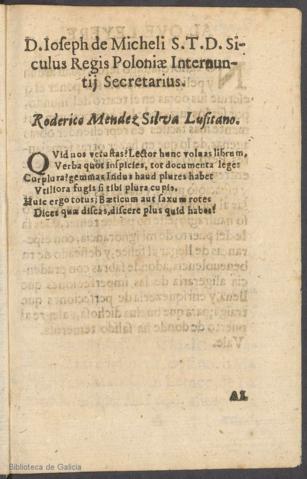 D. Ioseph de Micheli S. T. D. Si-
culus Regis Poloniæ Internun-
tij Secretarius.
Roderico Mendez Silva Lusitano.
QVid nos vetustas? Lector hunc voluas librum,
Verba quot inspicies, tot documenta leges
Cur plura? gemmas Indus haud plures habet
Vtiliora fugis si tibi plura cupis,
Huic ergo totus; Bæticum aut saxum rotes
Dices quæ discas, discere plus quid habes?
AL
Biblioteca de Galicia